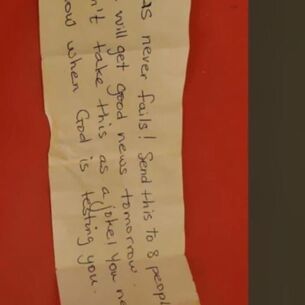 as never fails! Send this to 8 peopl
will get good news tomorrow.
n't take this as a joke! You ne
ow when God is testing you.